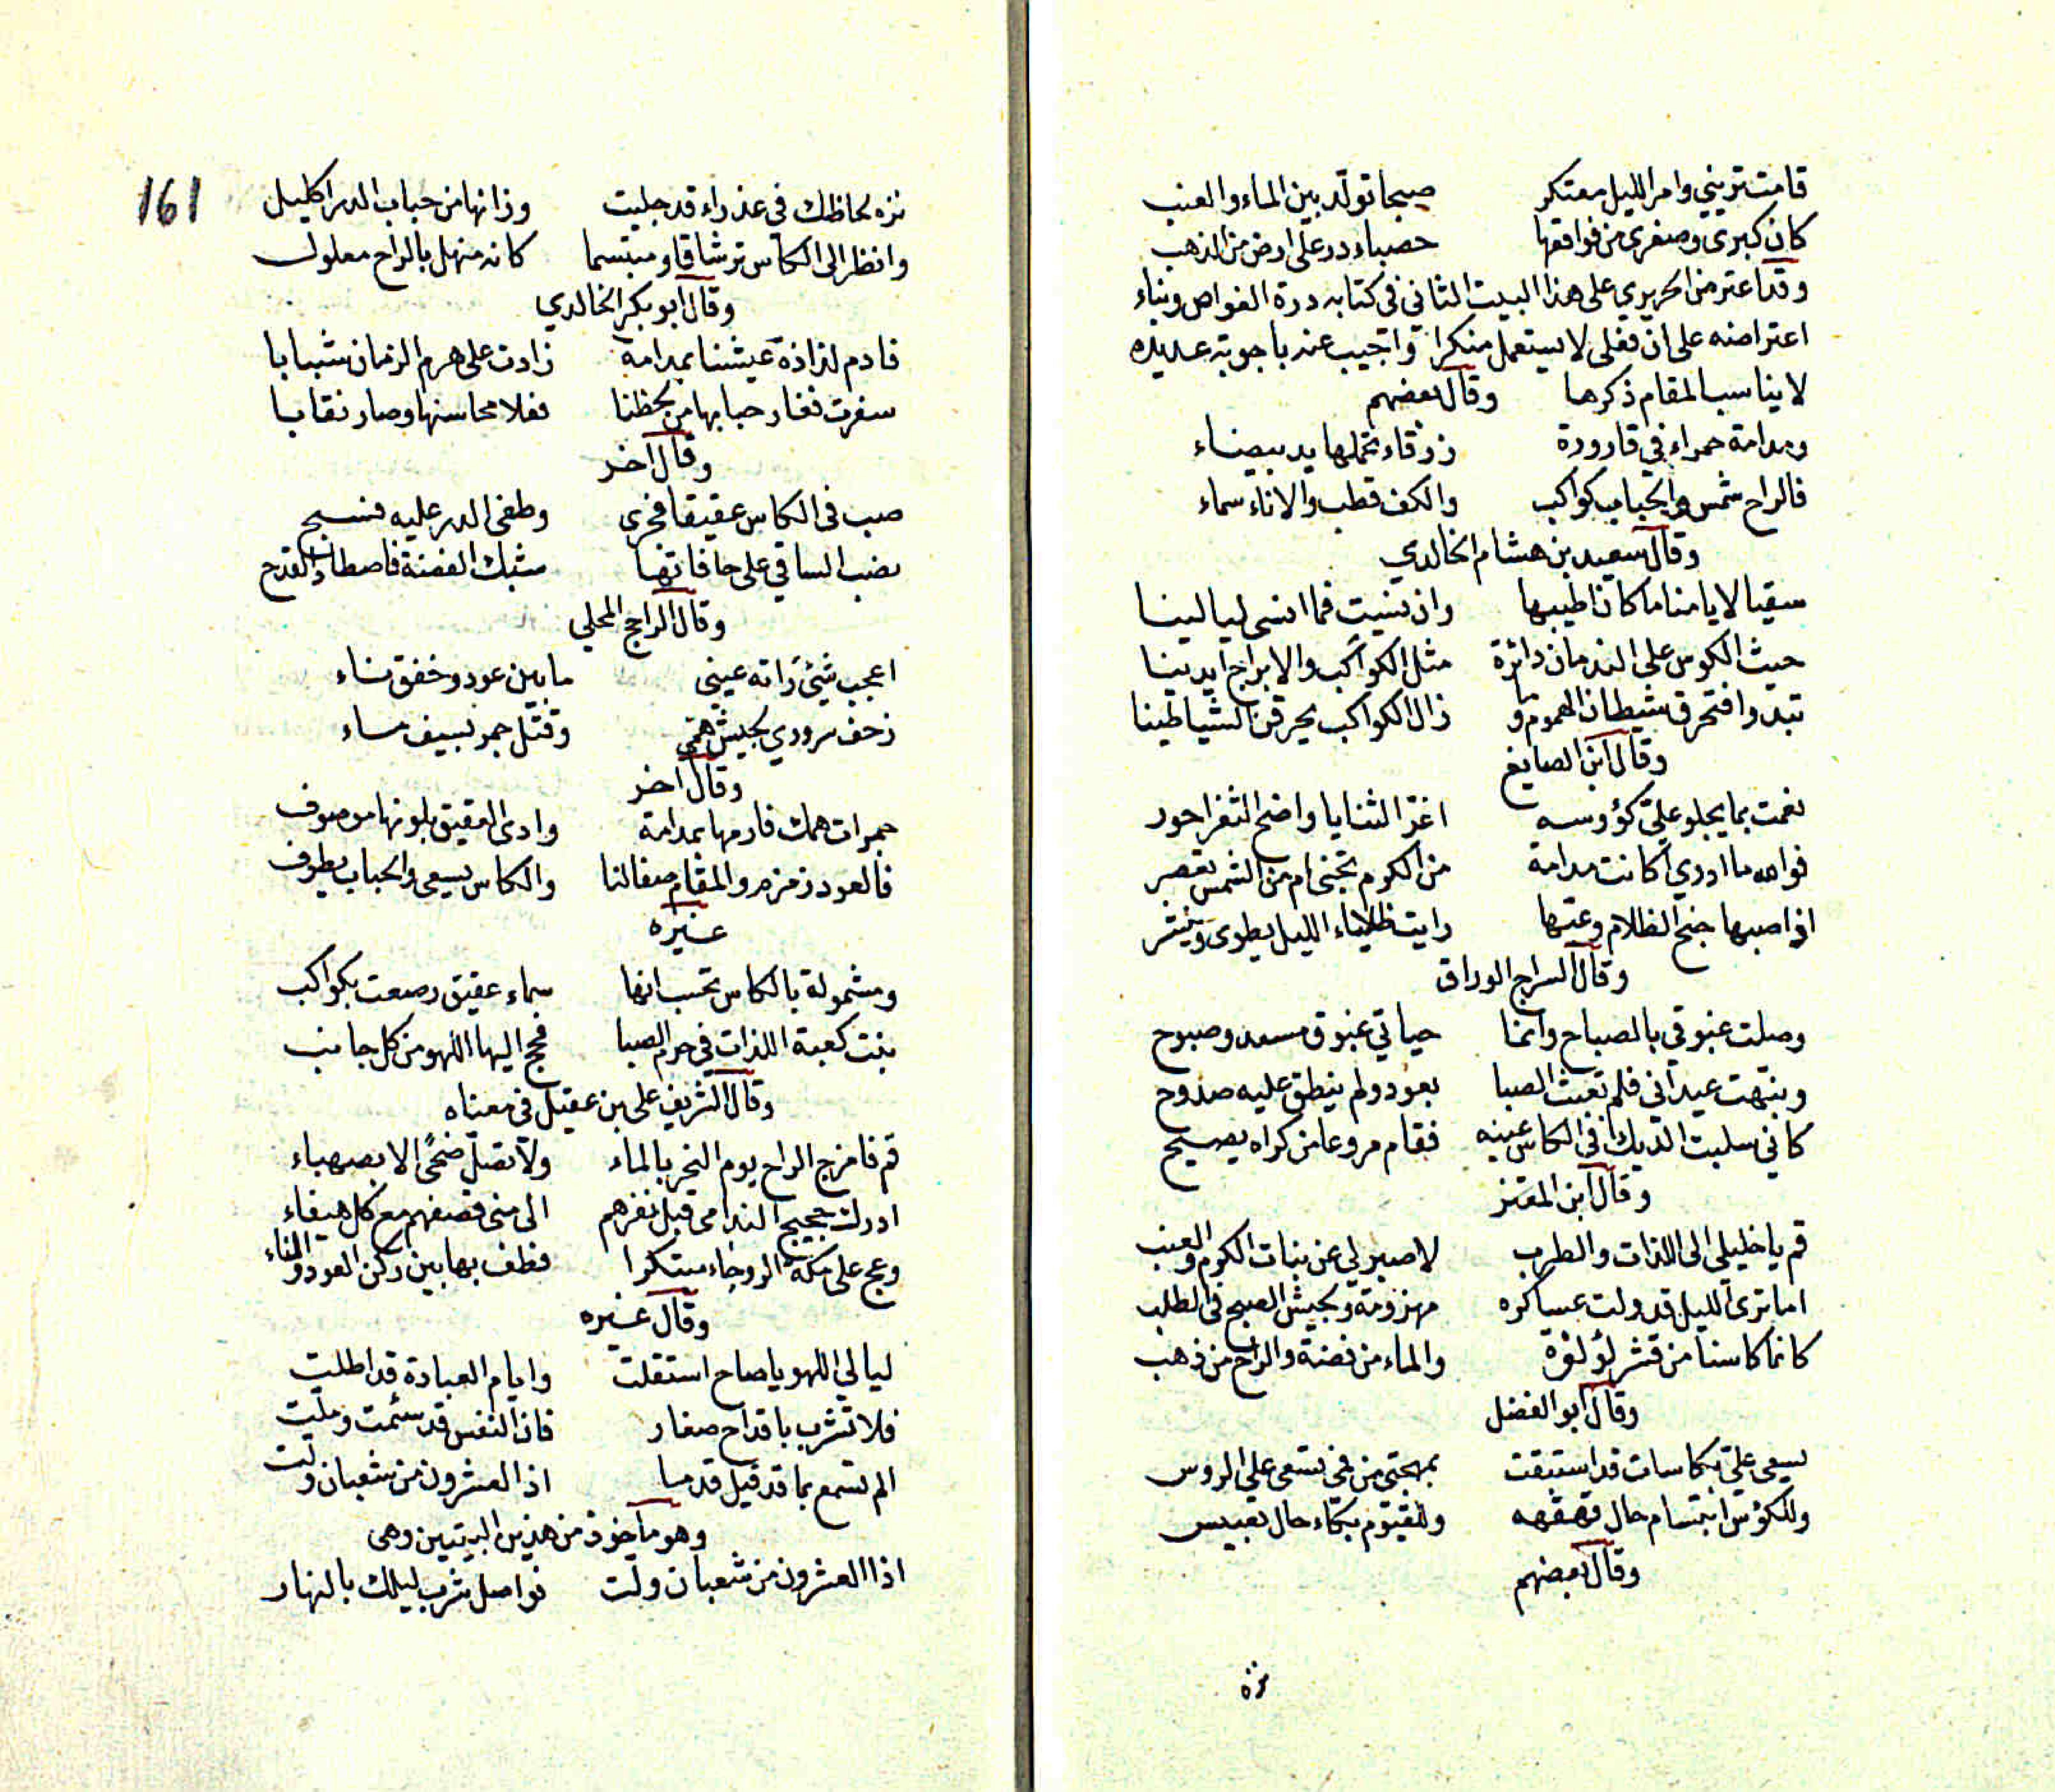 قامت تريني وامر الليل معتكر صبحا تولد بين الماء والعنب
كان كبرى وصغرى من فواقعها حصباء در على ارض من الذهب
وقد اعترض الحريري على هذا البيت الثاني في كتابه درة الغواص وبناء
اعتراضه على ان فعلى لا يستعمل منكرا واجيب عنه باجوبة عديده
لا يناسب المقام ذكرها وقال بعضهم
ومدامة حمراء في قارورة زرقاء تحملها يد بيضاء
فالراح شمس والحباب كواكب والكف قطب والاناء سماء
وقال سعيد بن هشام الخالدي
سقيا لايامنا ما كان اطيبها وان تنيت فما انسى ليالينا
حيث الكوس على الندمان دائرة مثل الكواكب والابراج ايدينا
تبدوا فتحرق شيطان الهموم وما زال الكواكب يحرقن الشياطينا
وقال ابن الصايغ
نعمت بما يجلو علي كؤوسه اغر الثنايا واضح الثغر احور
فوالله ما ادري اكانت مدامة من الكرم تجنى ام من الشمس تعصر
اذا صبها جنح الظلام وعبها رايت ظلماء الليل يطوى وينشر
وقال السراج الوراق
وصلت غبوقي بالصباح وانما حياتي غبوق مسعد وصبوح
ونبهت عيداني فلم تعبث الصبا بعود ولم ينطق عليه صدوح
كاني سلبت الديك في الكاس عينه فقام مروعا من كراه يصيح
وقال ابن المعتز
قم يا خليلي الى اللذات والطرب لا صبر لي عن بنات الكرم والعنب
اما ترى الليل قد ولت عساكره مهزومة وجيش الصبح في الطلب
كانما كاسنا من قشر لؤلؤة والماء من فضة والراح من ذهب
وقال ابو الفضل
يسعى علي بكاسات قد استبقت بمهجتي من فحى تسعى على الروس
وللكؤس ابتسام حال قهقهه وللقيوم بكاء حال تعبيس
وقال بعضهم
نزه
161
نزه لحاظك في عذراء قد جليت وزانها من حباب الدر اكليل
وانظر الى الكاس ترشاقا ومبتسما كانه منهل بالراح معلول
وقال ابو بكر الخالدي
فادم لذاذة عيشنا بمدامة زادت على هرم الزمان شبابا
سفرت فغار حبابها من لحظنا فعلا محاسنها وصار نقابا
وقال اخر
صب في الكاس عقيقا فجرى وطفى الدر عليه فسبح
نصب الساقي على حافاتها شبك الفضة فاصطاد القدح
وقال الراجح المحلي
اعجب شئ راته عيني ما بين عود وخفق ناء
زحف سروري بجيش همي وقتل خمر بسيف ماء
وقال اخر
جمرات همك فارمها بمدامة وادى العقيق بلونها موصوف
فالعود زمزم والمقام صفالنا والكاس يسعى والحباب يطوف
غيره
ومشمولة بالكاس تحسب انها سماء عقيق رصعت بكواكب
بنت كعبة اللذات في حرم الصبا فحج اليها اللهو من كل جانب
وقال الشريف علي بن عقيل في معناه
قم فامزج الراح يوم النحر بالماء ولا تصل ضحًى الا بصهباء
ادرك حجيج الندامى قبل نفرهم الى منى قصفهم مع كل هيفاء
وعج على مكة الروحاء مبتكرا فطف بها بين ركن العود والناء
وقال غيره
ليالي اللهو يا صاح استقلت وايام العبادة قد اطلت
فلا تشرب باقداح صغار فان النفس قد سئمت وملت
الم تسمع بما قد قيل قدما اذ العشرون من شعبان ولت
وهو ماخوذ من هذين البيتين وهى
اذا العشرون من شعبان ولت فواصل شرب ليلك بالنهار